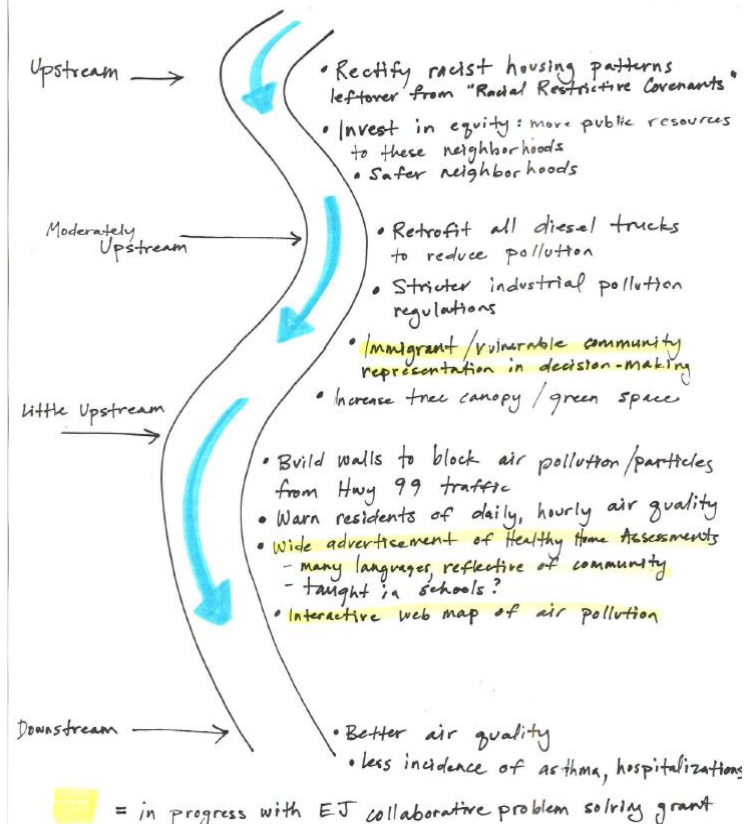 Upstream
• Rectify racist housing patterns
leftover from "Racial Restrictive Covenants"
• Invest in equity: more public resources
to these neighborhoods
• Safer neighborhoods
Moderately
Upstream
• Retrofit all diesel trucks
to reduce pollution
• Stricter industrial pollution
regulations
• Immigrant/vulnerable community
representation in decision-making
• Increase tree canopy/green space
Little Upstream
• Build walls to block air pollution/particles
from Hwy 99 traffic
• Warn residents of daily, hourly air quality
• Wide advertisement of Healthy Home Assessments
- many languages, reflective of community
- taught in schools?
• Interactive web map of air pollution
Downstream
• Better air quality
• less incidence of asthma, hospitalizations
= in progress with EJ collaborative problem solving grant